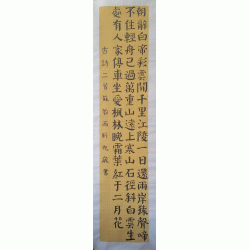 朝辭白帝彩雲間千里江陵一日還兩岸猿聲啼
不住輕舟已過萬重山遠上寒山石徑斜白雲生
處有人家停車坐愛楓林晚霜葉紅于二月花
古詩二首 九歲書